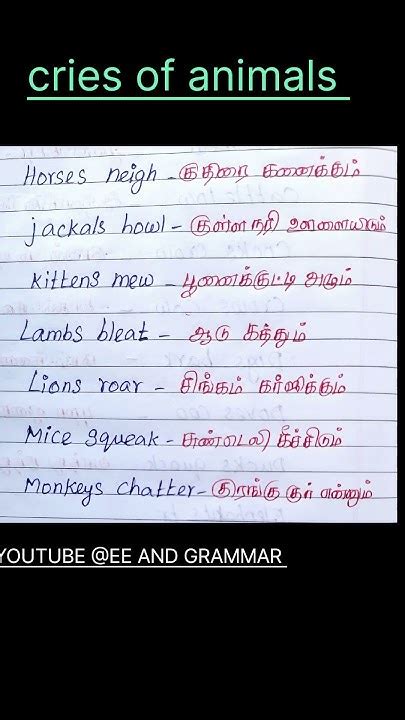 cries of animals
Horses neigh - குதிரை கனைக்கும்
jackals howl - குள்ளநரி ஊளையிடும்
kittens mew - பூனைக்குட்டி அழும்
Lambs bleat - ஆடு கத்தும்
Lions roar - சிங்கம் கர்ஜிக்கும்
Mice squeak - சுண்டெலி கீச்சிடும்
Monkeys chatter - குரங்கு குர் என்னும்
YOUTUBE @EE AND GRAMMAR